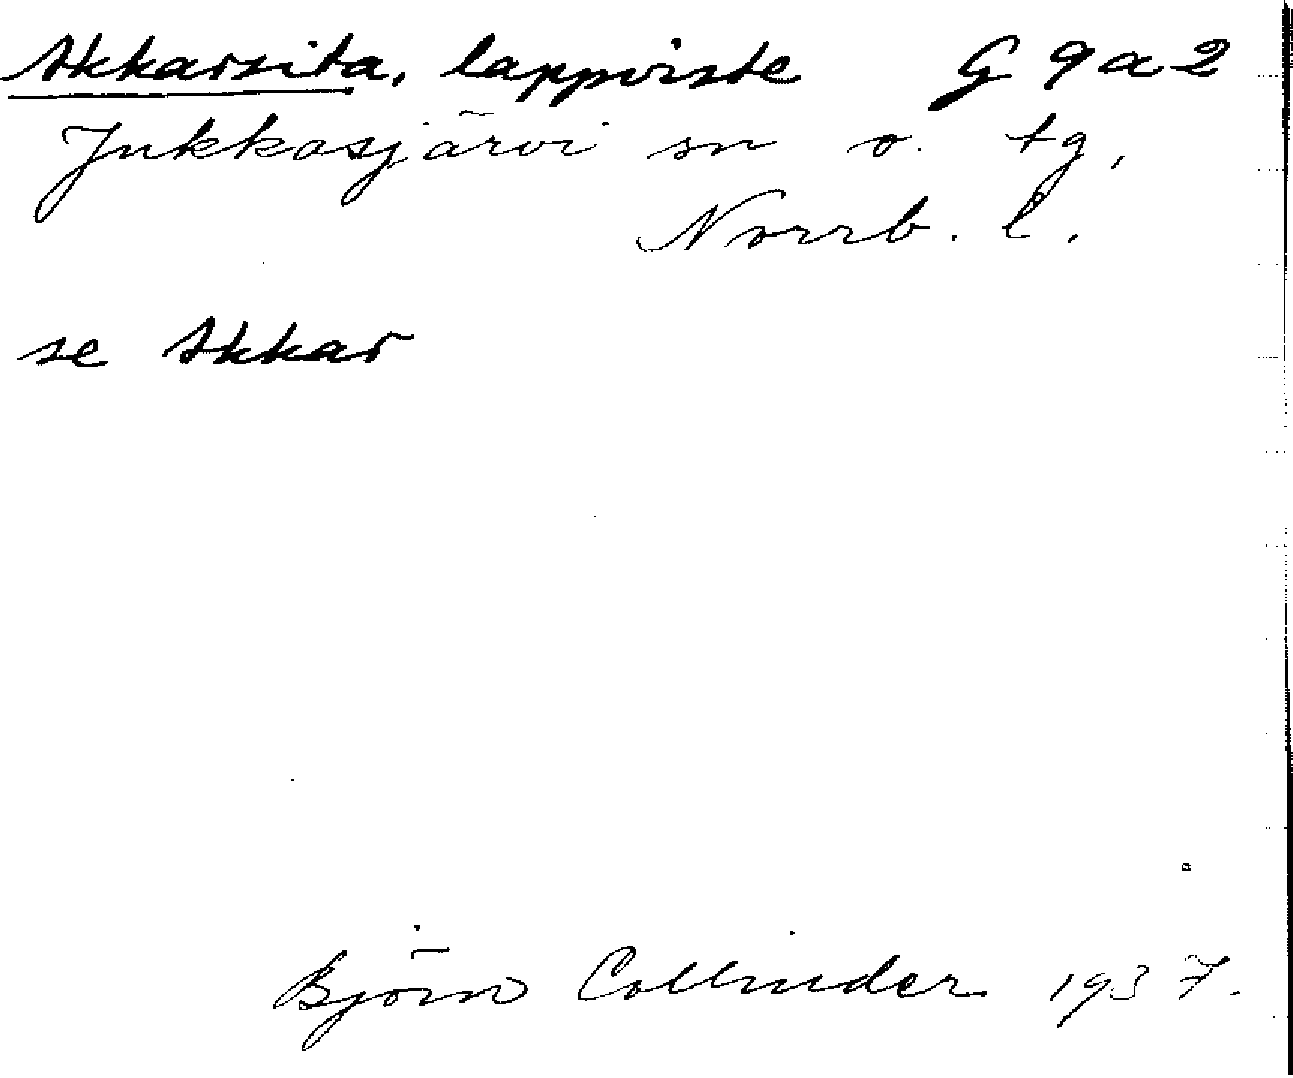 Akkarsita, lappviste G 9 a 2
Jukkasjärvi sn o. tg,
Norrb. l.
se Akkar
Björn Collinder 1937.